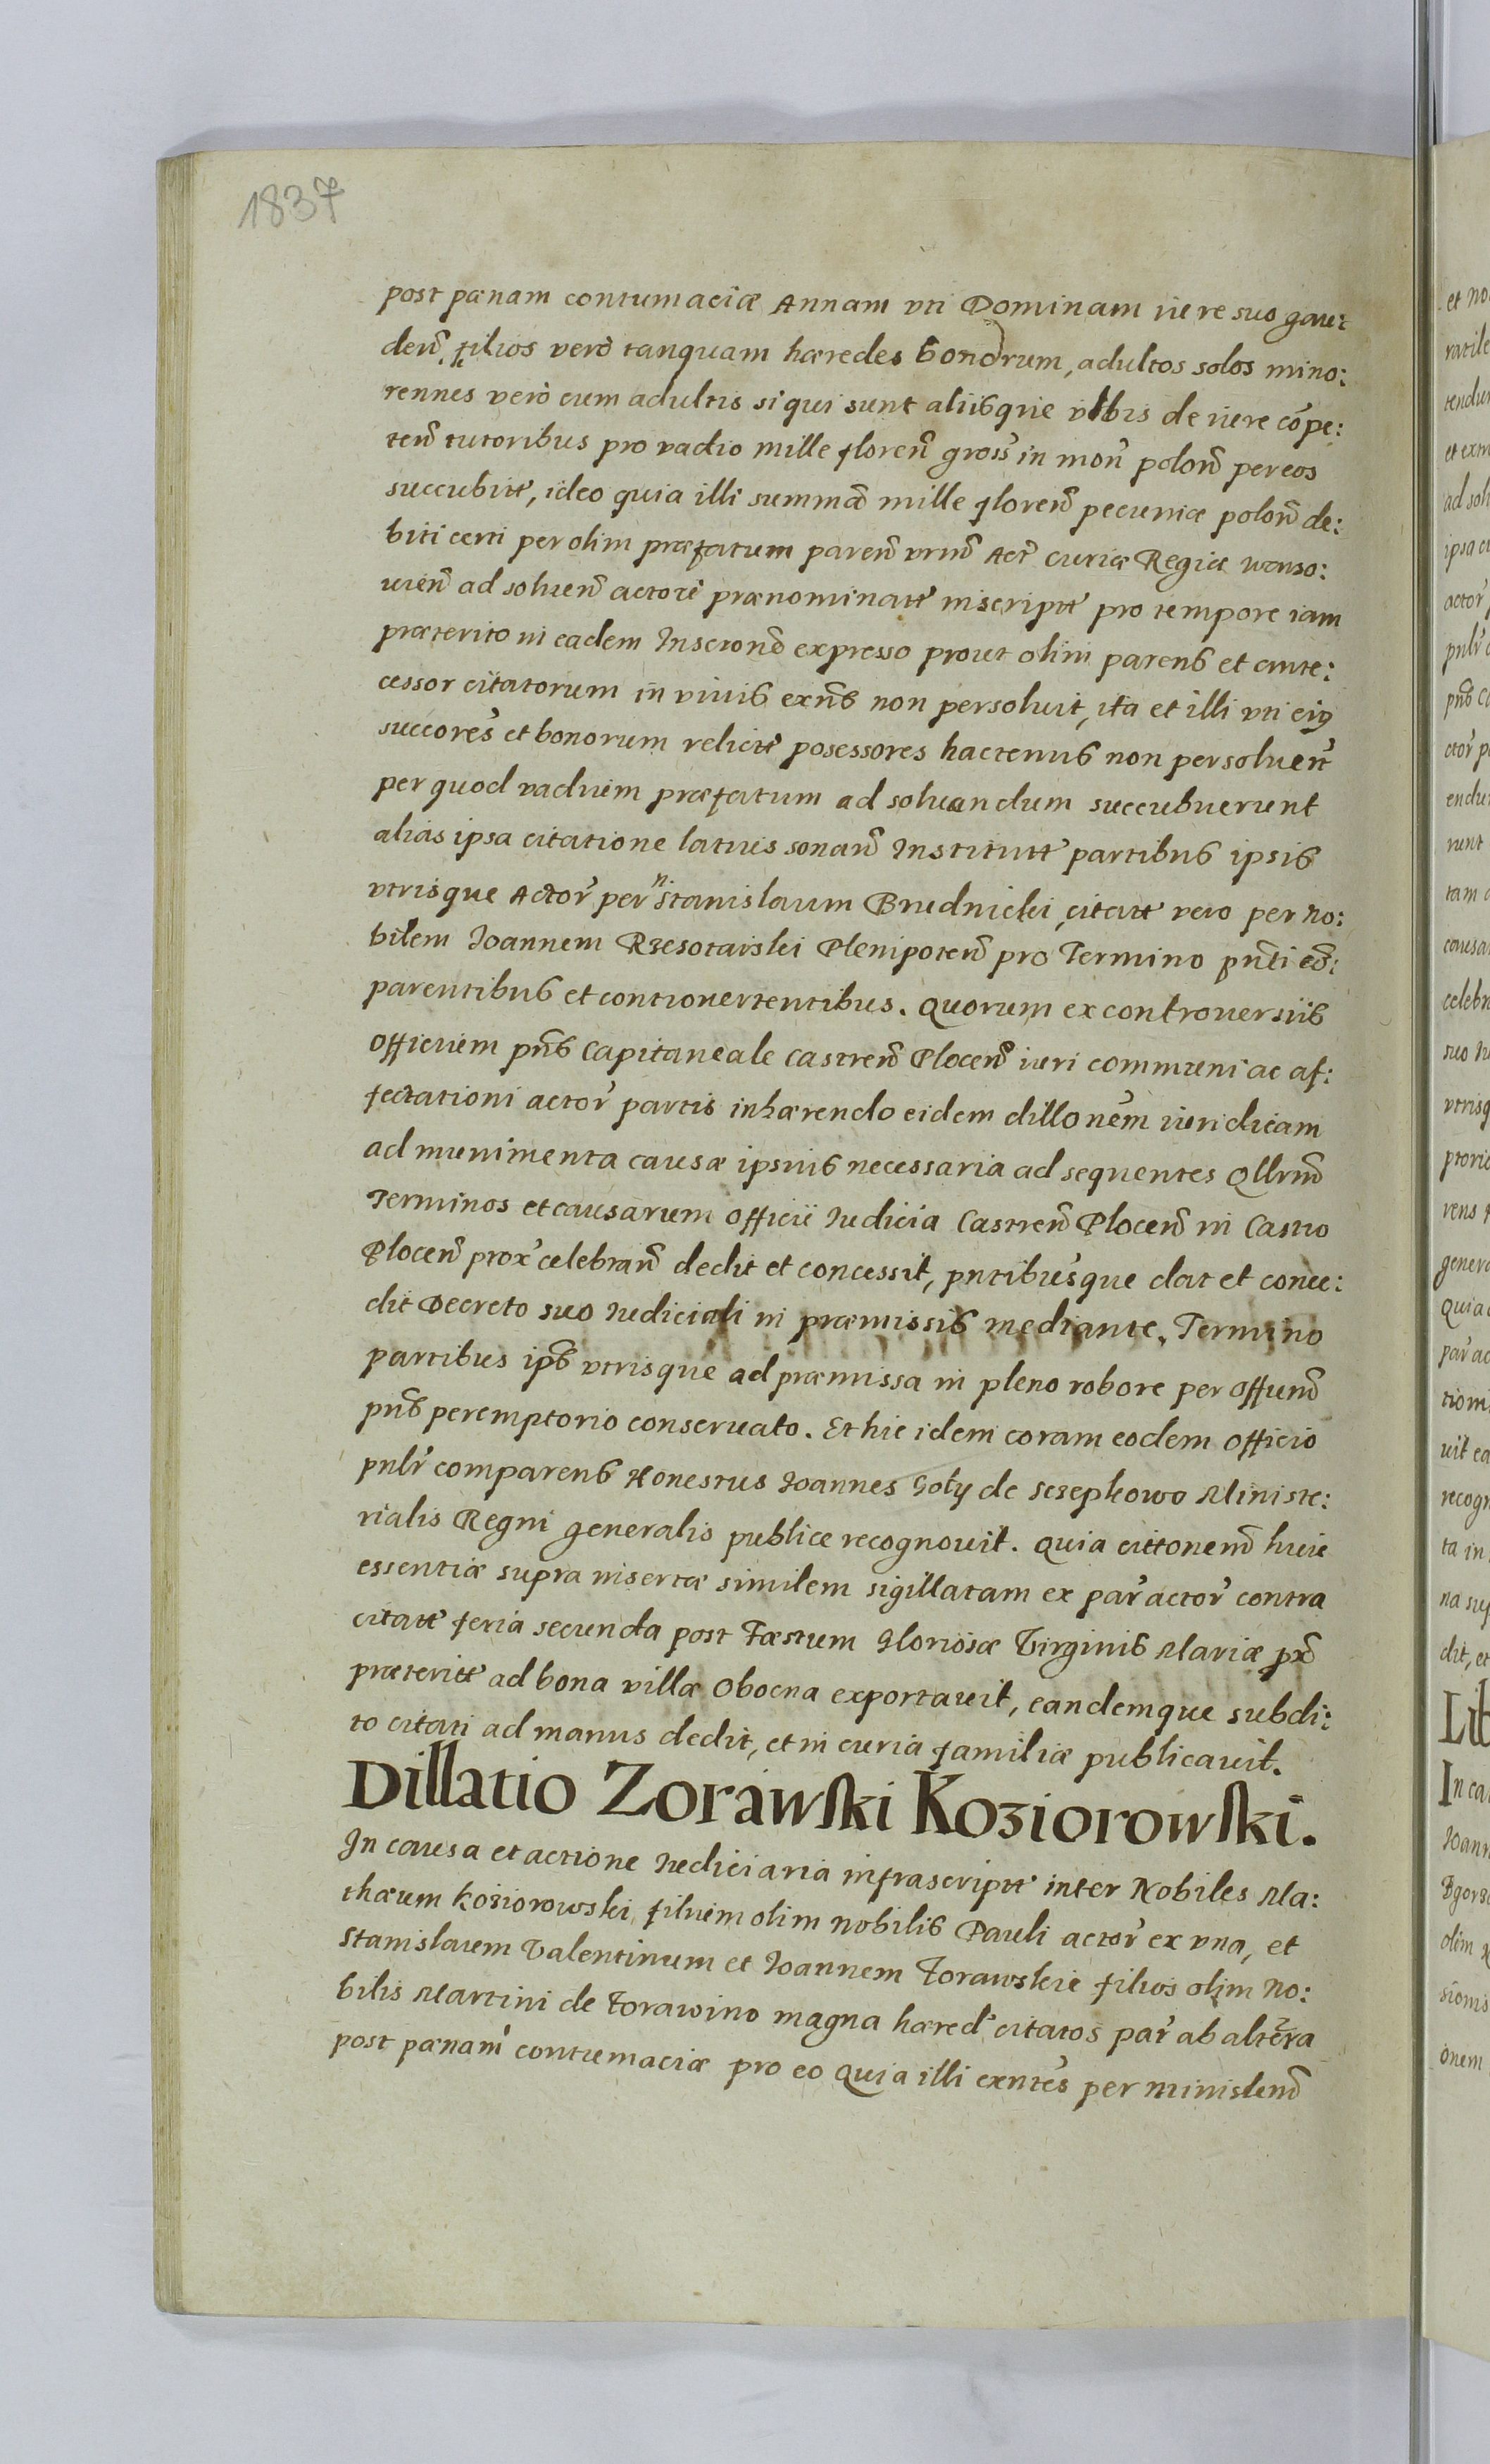 1837
post pœnam contumaciæ Annam vti Dominam iure suo gau:
deñ, filios verò tanquam hæredes bonorum, adultos solos mino:
rennes verò cum adultis si qui sunt aliisque vlbis de iure cõpe:
teñ tutoribus pro vadio mille floreñ gross in moñ poloñ per eos
succubitt, ideo quia illi summã mille floreñ pecuniæ poloñ de:
biti certi per olim præfatum pareñ vrnd Act curiæ Regiæ warso:
uieñ ad solueñ actori prænominatt inscriptt pro tempore iam
præterito in eadem Inscrond expresso prout olim parens et ante:
cessor citatorum in viuis exñs non persoluit, ita et illi vti eiꝰ
succores et bonorum relictt posessores hactenus non persoluert
per quod vadium præfatum ad soluandum succubuerunt
alias ipsa citatione latius sonañ Institutt partibus ipsis
vtrisque Actor per n Stanislaum Brudnicki, citatt vero per No:
bilem Ioannem Rzesotarski Plenipoteñ pro Termino pñti cõ:
parentibus et controuertentibus. Quorum ex controuersiis
Officium pñs Capitaneale Castreñ Ploceñ iuri communi ac af:
fectationi actor partis inhærendo eidem dillonem iuridicam
ad munimenta causæ ipsius necessaria ad sequentes Qllrnd
Terminos et causarum Officii Iudicia Castreñ Ploceñ in Castro
Ploceñ prox celebrañ dedit et concessit, pntibusque dat et conce:
dit Decreto suo Iudiciali in præmissis mediante, Termino
partibus ips vtrisque ad præmissa in pleno robore per Offund
pñs peremptorio conseruato. Et hic idem coram eodem Officio
pnlr comparens Honestus Ioannes Goły de Szepkowo Ministe:
rialis Regni generalis publice recognouit. Quia cittonem huic
essentiæ supra insertæ similem sigillatam ex par actor contra
citatt feria secunda post Fæstum Gloriosæ Virginis Mariæ prõ
præteritt ad bona villæ Obocna exportauit, eandemque subdi:
to citati ad manus dedit, et in curia familiæ publicauit.
Dillatio Zorawski Koziorowski.
In causa et actione Iudiciaria infrascriptt inter Nobiles Ma:
thæum Koziorowski, filium olim nobilis Pauli actor ex vna, et
Stanislaum Valentinum et Ioannem Zorawskie filios olim No:
bilis Martini de Zorawino magna hæred citatos par ab altera
post pœnam contumaciæ pro eo Quia illi exntes per ministend